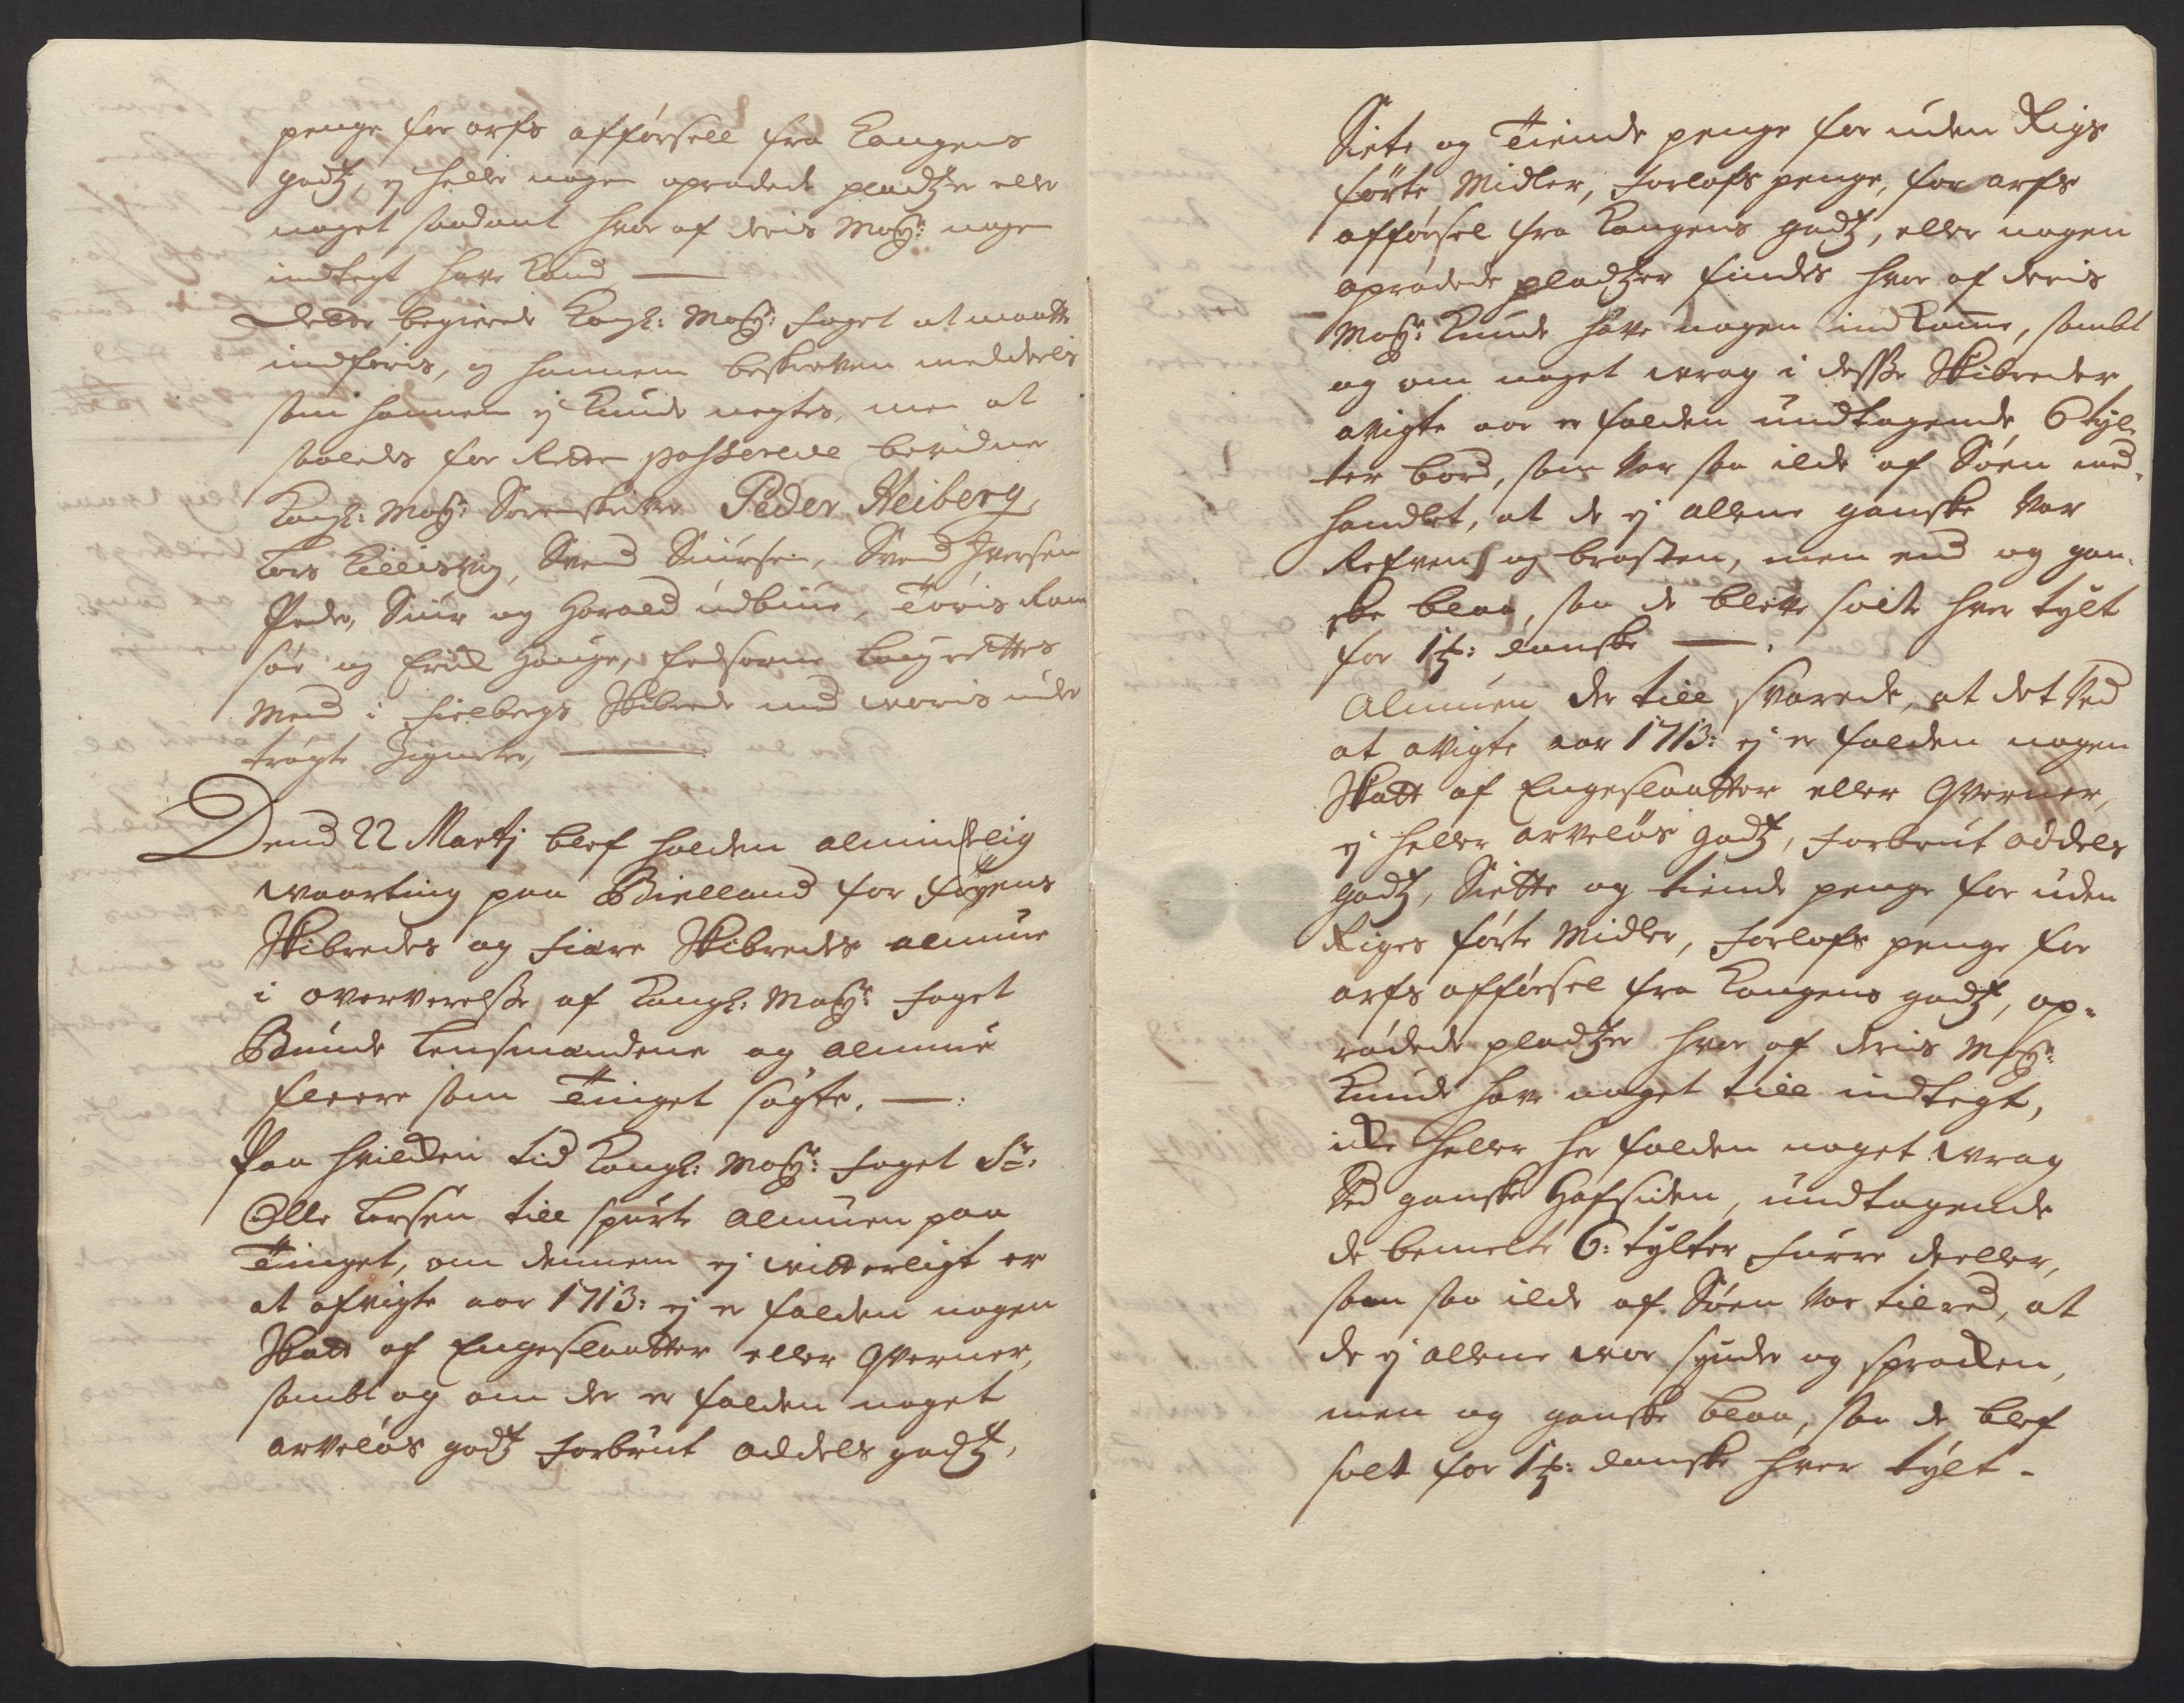 penge for arfs afførsell fra Kongens
godtz, ej heller nogen oprødede pladtzer eller
noget saadant hvor af deris May:ts nogen
indtegt have Kand —
Dette begierede Kongl: May:ts foget at maatte
indføris, og hannem beskreven meddeelis
som hannem ej Kunde negtes, men at
saaledes for Retten passerede bevidner
Kongl: May:ts Sorenskriver Peder Heiberg,
Lars Lillisvig, Svend Siursen, Svend Iversen
Peder, Siur og Harald indbiue, Toris Ram
søe og Erick Houge, Eedsorne Laugrettes
Mend i Fielbergs Skibrede med voris under
trøgte Zigneter, —
Dend 22 Martj blef holden almindelig
Waarting paa Bielland for Føyens
Skibredes og Fiære Skibredes almue
i oververelsse af Kongl: May:ts foget
Bunde Lensmændene og almue
fleere som Tinget søgte, —:
Paa hvilcken tid Kongl: May:ts foget Sr:
Olle Larsen till spurte almuen paa
Tinget, om dennem ej vitterligt er
at afvigte aar 1713: ej er falden nogen
Skatt af Engeslaatter eller Qverner,
sambt og om der er falden noget
arveløs godtz Forbrut oddels godtz,
Siete og Tiende penge for uden Rigs
førte Midler, Forlofs penge, for arfs
afførsel fra Kongens godtz, eller nogen
oprødede pladtzer findes hvor af deris
May:ts Kunde have nogen indkomme, sambt
og om noget vrag i desse Skibreder
avigte aar er falden undtagende 6 tyl-
ter bord, som var saa ilde af Søen med-
handlet, at de ej allene ganske var
Refven og brosten, men end og gan-
ske blaa, saa de blefve solte hver tylt
for 1 ℔: danske —.
Almuen der till svarede, at det ved
at avigte aar 1713: ej er falden nogen
Skatt af Engeslaatter eller Qverner,
ej heller arveløs godtz, forbrut oddels
godtz, Siette og tiende penge for uden
Riges førte Midler, Forlofs penge for
arfs afførsel fra Kongens godtz, op-
rødede pladtzer hvor af deris May:ts
Kunde have noget till indtegt,
icke heller her falden noget vrag
ved ganske Hafsiden, undtagende
de bemelte 6: tylter Furre deeller,
som saa ilde af Søen var tilred, at
de ej allene var synder og sprocken,
men og ganske blaa, saa de blef
solt for 1 ℔: danske hver tylt -